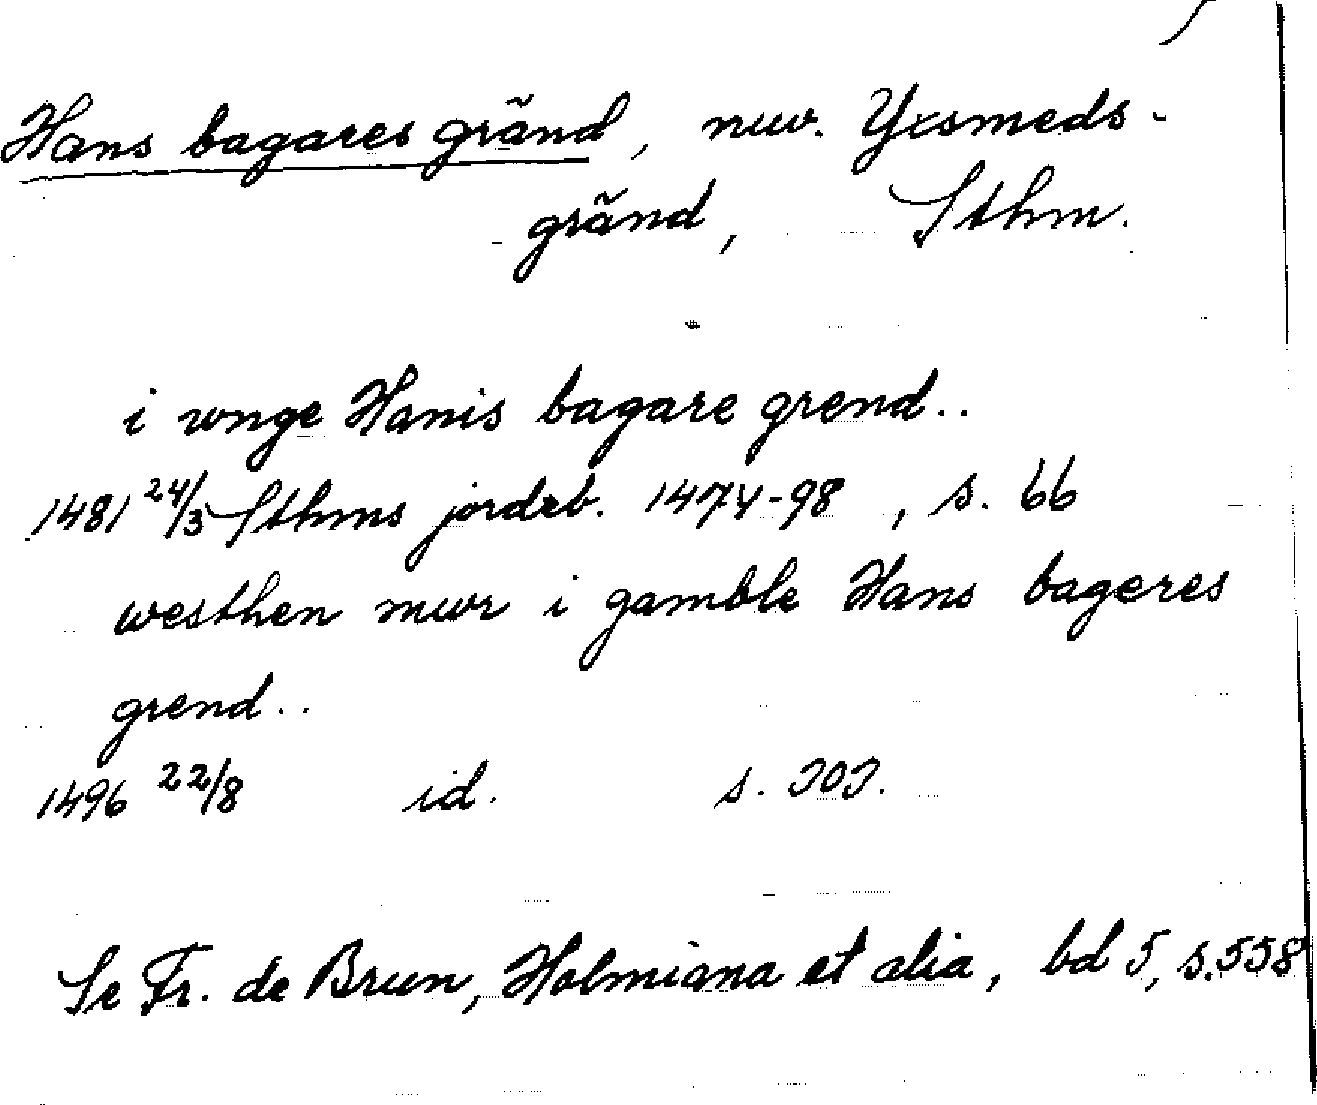 Hans bagares gränd, nuv. Yxsmeds-
gränd, Sthm.
i wnge Hanis bagare grend..
1481 24/3 Sthms jordeb. 1474-98, s. 66
westhen mwr i gamble Hans bageres
grend..
1496 22/8 id. s. 303.
Se Fr. de Brun, Holmiana et alia, bd 5, s.558